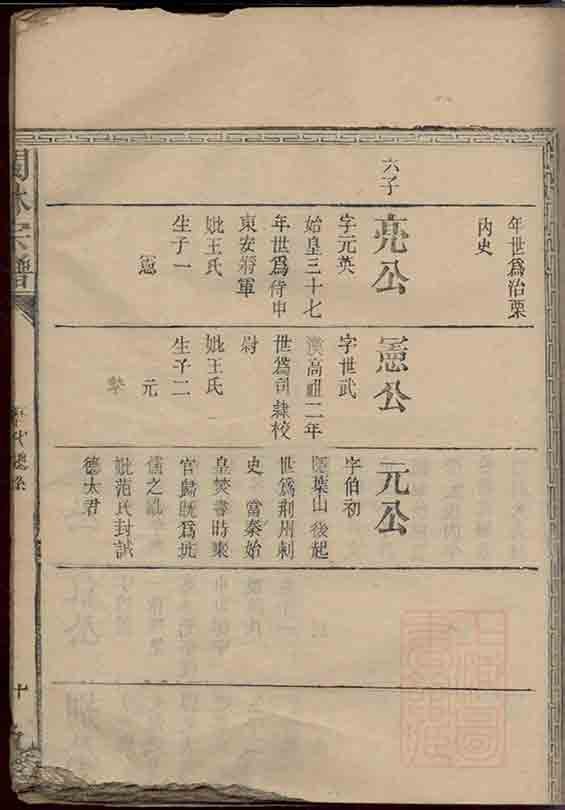 年世爲治栗
內史
六子
亮公
字元英
始皇三十七
年世爲侍中
東安將軍
妣王氏
生子一
憲
憲公
字世武
漢高祖二年
世爲司隸校
尉
妣王氏
生子二
元
元公
字伯初
隱葉山後起
世爲荆州刺
史 當秦始
皇焚書時棄
官歸旣爲坑
儒之
妣范氏封誠
德太君
林宗譜